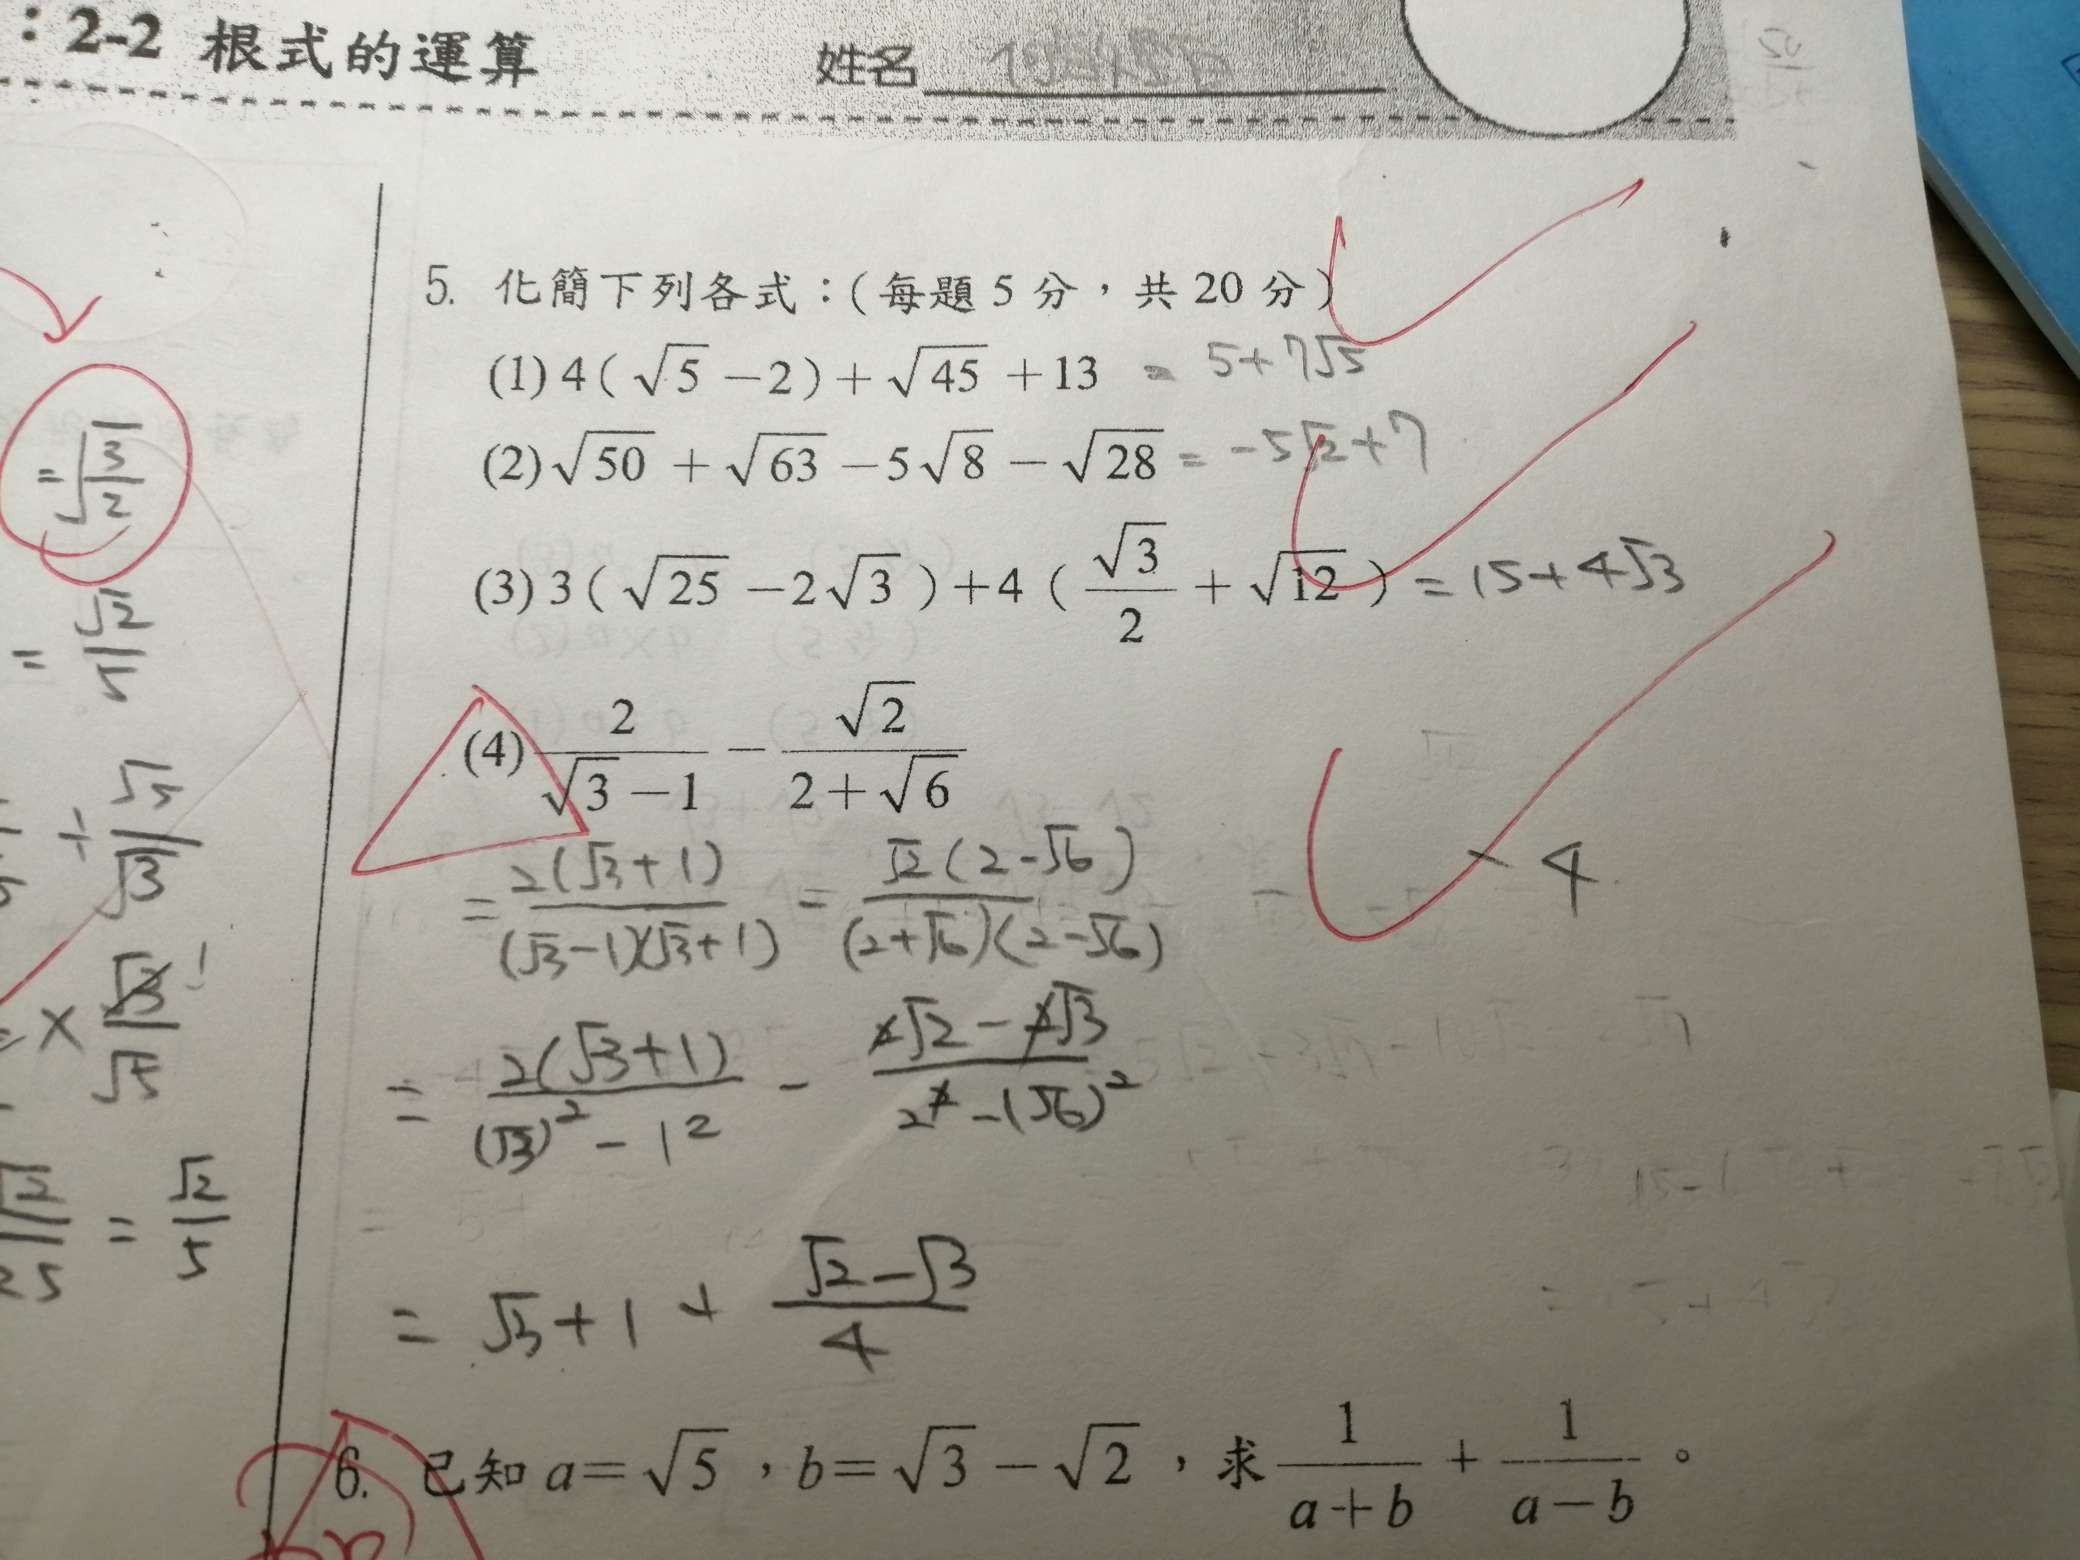 ：2-2 根式的運算 姓名
5. 化簡下列各式：（每題 5 分，共 20 分）
(1) 4（√5 －2）＋√45 ＋13 = 5+7√5
(2) √50 ＋√63 －5√8 －√28 = -5√2+7
(3) 3（√25 －2√3 ）＋4（√3/2 ＋√12 ）= 15+4√3
(4) 2/(√3 －1) － √2/(2＋√6)
= 2(√3+1)/((√3-1)(√3+1)) = √2(2-√6)/((2+√6)(2-√6))
- 4
= 2(√3+1)/((√3)²-1²) - (2√2-2√3)/(2²-(√6)²)
= √3+1 + (√2-√3)/4
6. 已知 a＝√5 ，b＝√3 －√2 ，求 1/(a＋b) ＋ 1/(a－b) 。
= √(3/2)
× √3/√5
= √2/5